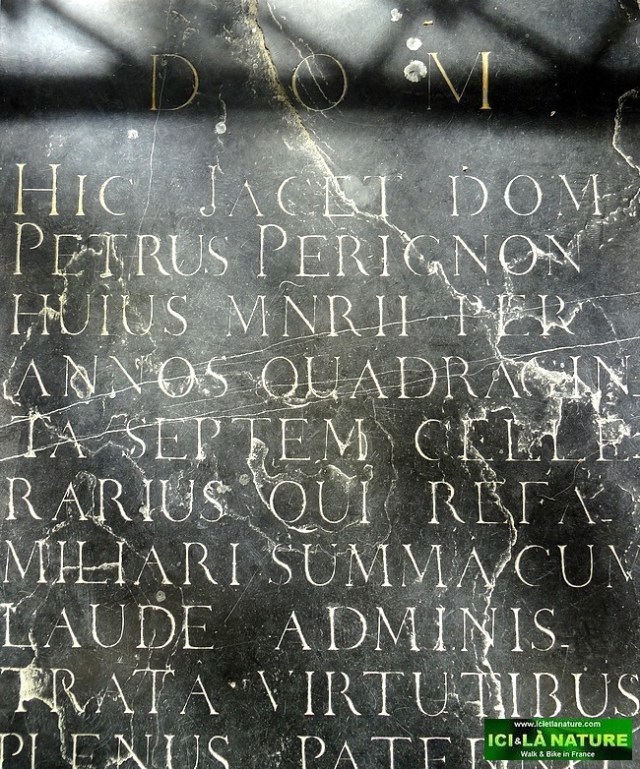 D O M
HIC JACET DOM
PETRUS PERIGNON
HUIUS MÑRII PER
ANNOS QUADRAGIN
TA SEPTEM CELLE
RARIUS QUI RE FA-
MILIARI SUMMA CUM
LAUDE ADMINIS-
TRATÂ VIRTUTIBUS
PLENUS
www.icietlanature.com
ICI & LÀ NATURE
Walk & Bike in France